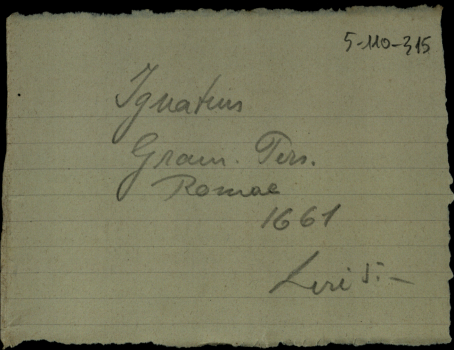 5-110-315
Ignatius
Gram. Pers.
Romae
1661